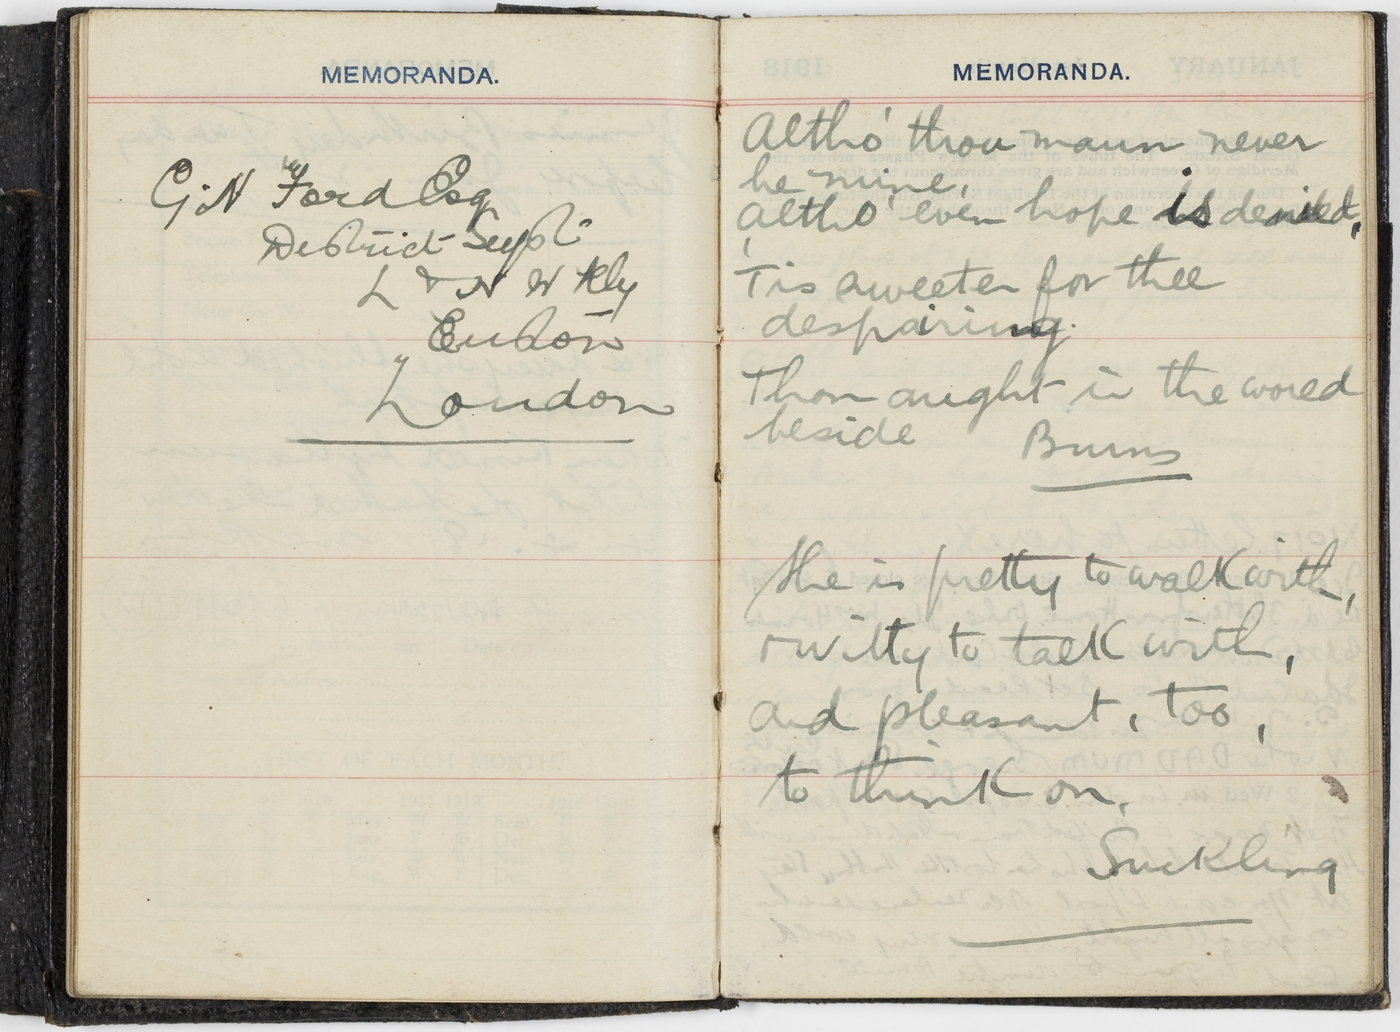 MEMORANDA.
G. N Ford Esq
District Supt
L & N W Rly
Euston
London
MEMORANDA.
Altho' thou maun never
be mine,
Altho' even hope is denied,
'Tis sweeter for thee
despairing
Than aught in the world
beside
Burns
She is pretty to walk with,
& witty to talk with,
and pleasant, too,
to think on.
Suckling